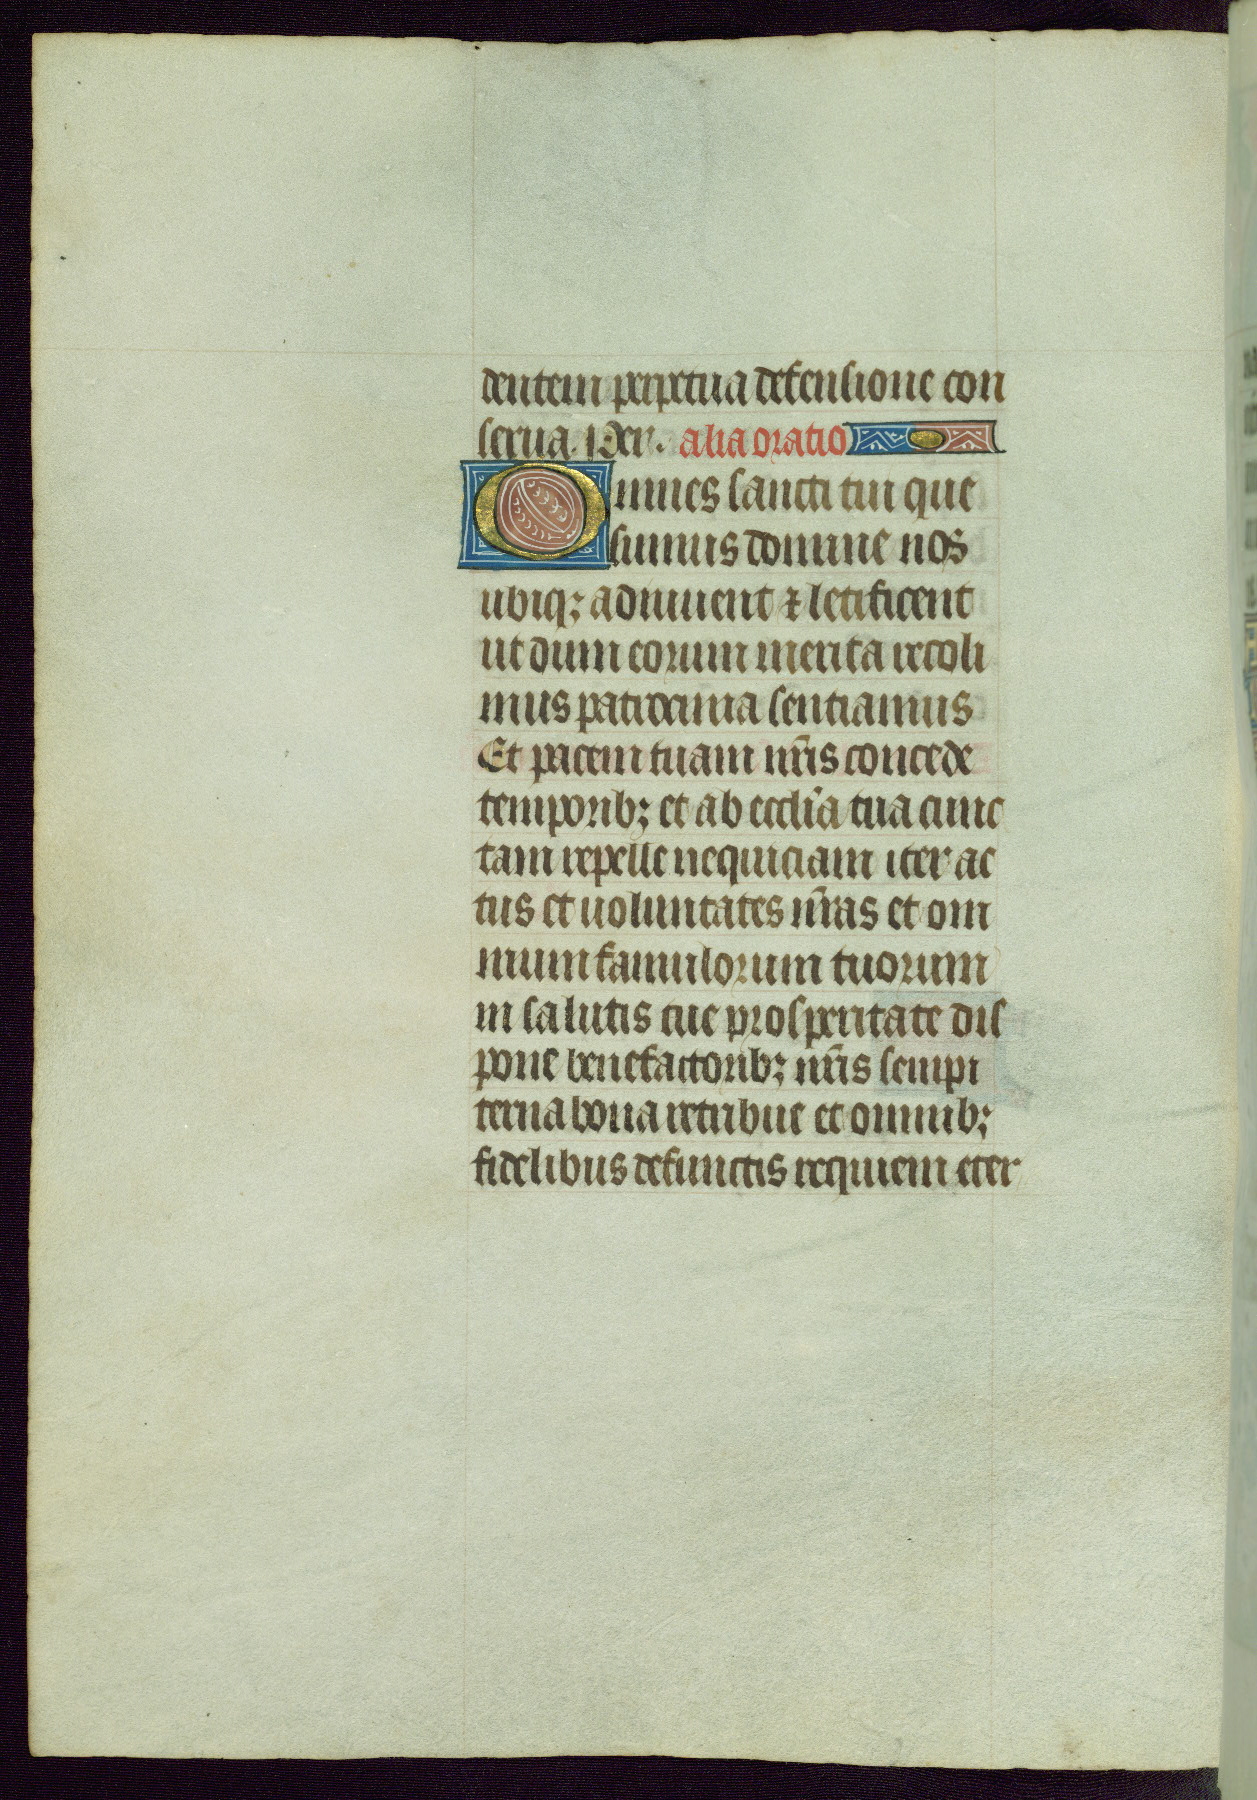 dentem perpetua defensione con
serua. Per. alia oratio
Omnes sancti tui que
sumus domine nos
ubiq; adiuuent ⁊ letificent
ut dum eorum merita recoli
mus patrocinia sentiamus
Et pacem tuam nr̄is concede
temporib; et ab eccl̄ia tua cunc
tam repelle nequiciam iter ac
tus et uoluntates nr̄as et om
nium famulorum tuorum
in salutis tue prosperitate dis
pone benefactorib; nr̄is sempi
terna bona retribue et omnib;
fidelibus defunctis requiem eter